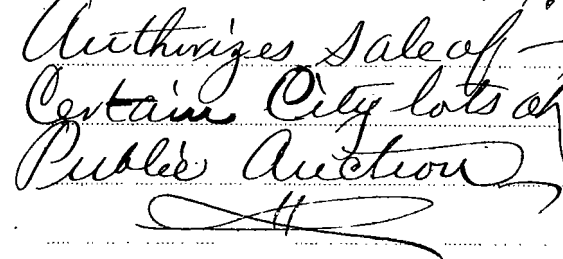 Authorizes Sale of -
Certain City lots at
Public Auction